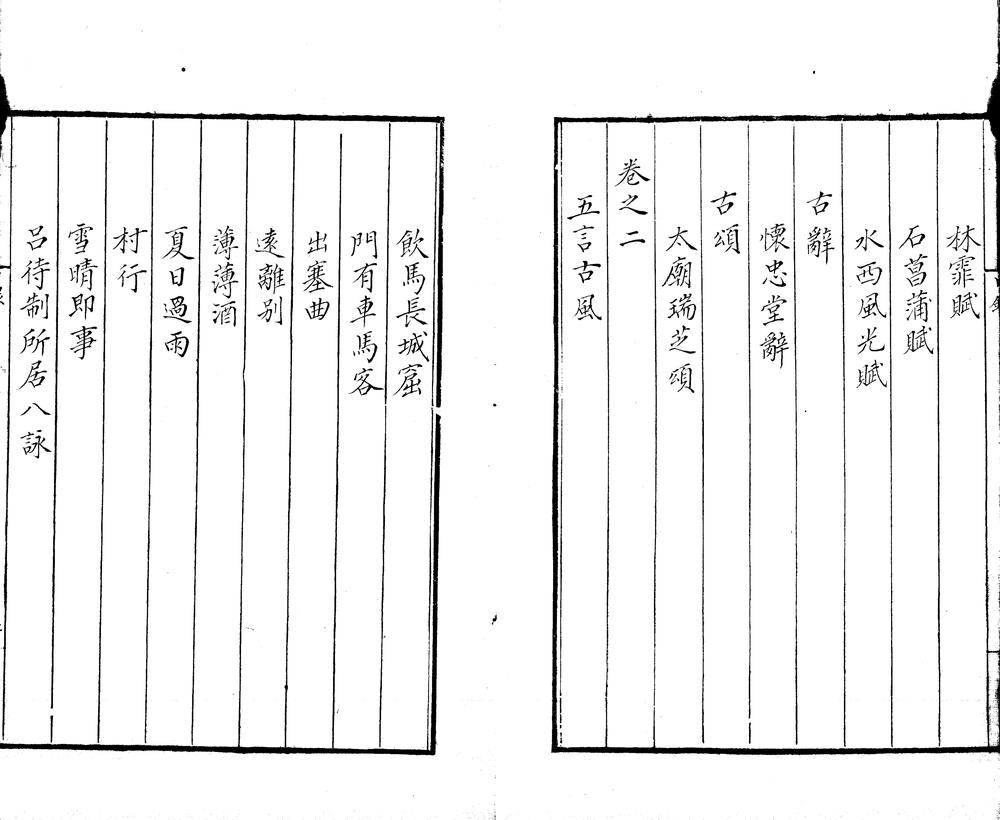 林霏賦
石菖蒲賦
水西風光賦
古辭
懷忠堂辭
古頌
太廟瑞芝頌
卷之二
五言古風
飲馬長城窟
門有車馬客
出塞曲
遠離別
薄薄酒
夏日過雨
村行
雪晴即事
呂待制所居八詠